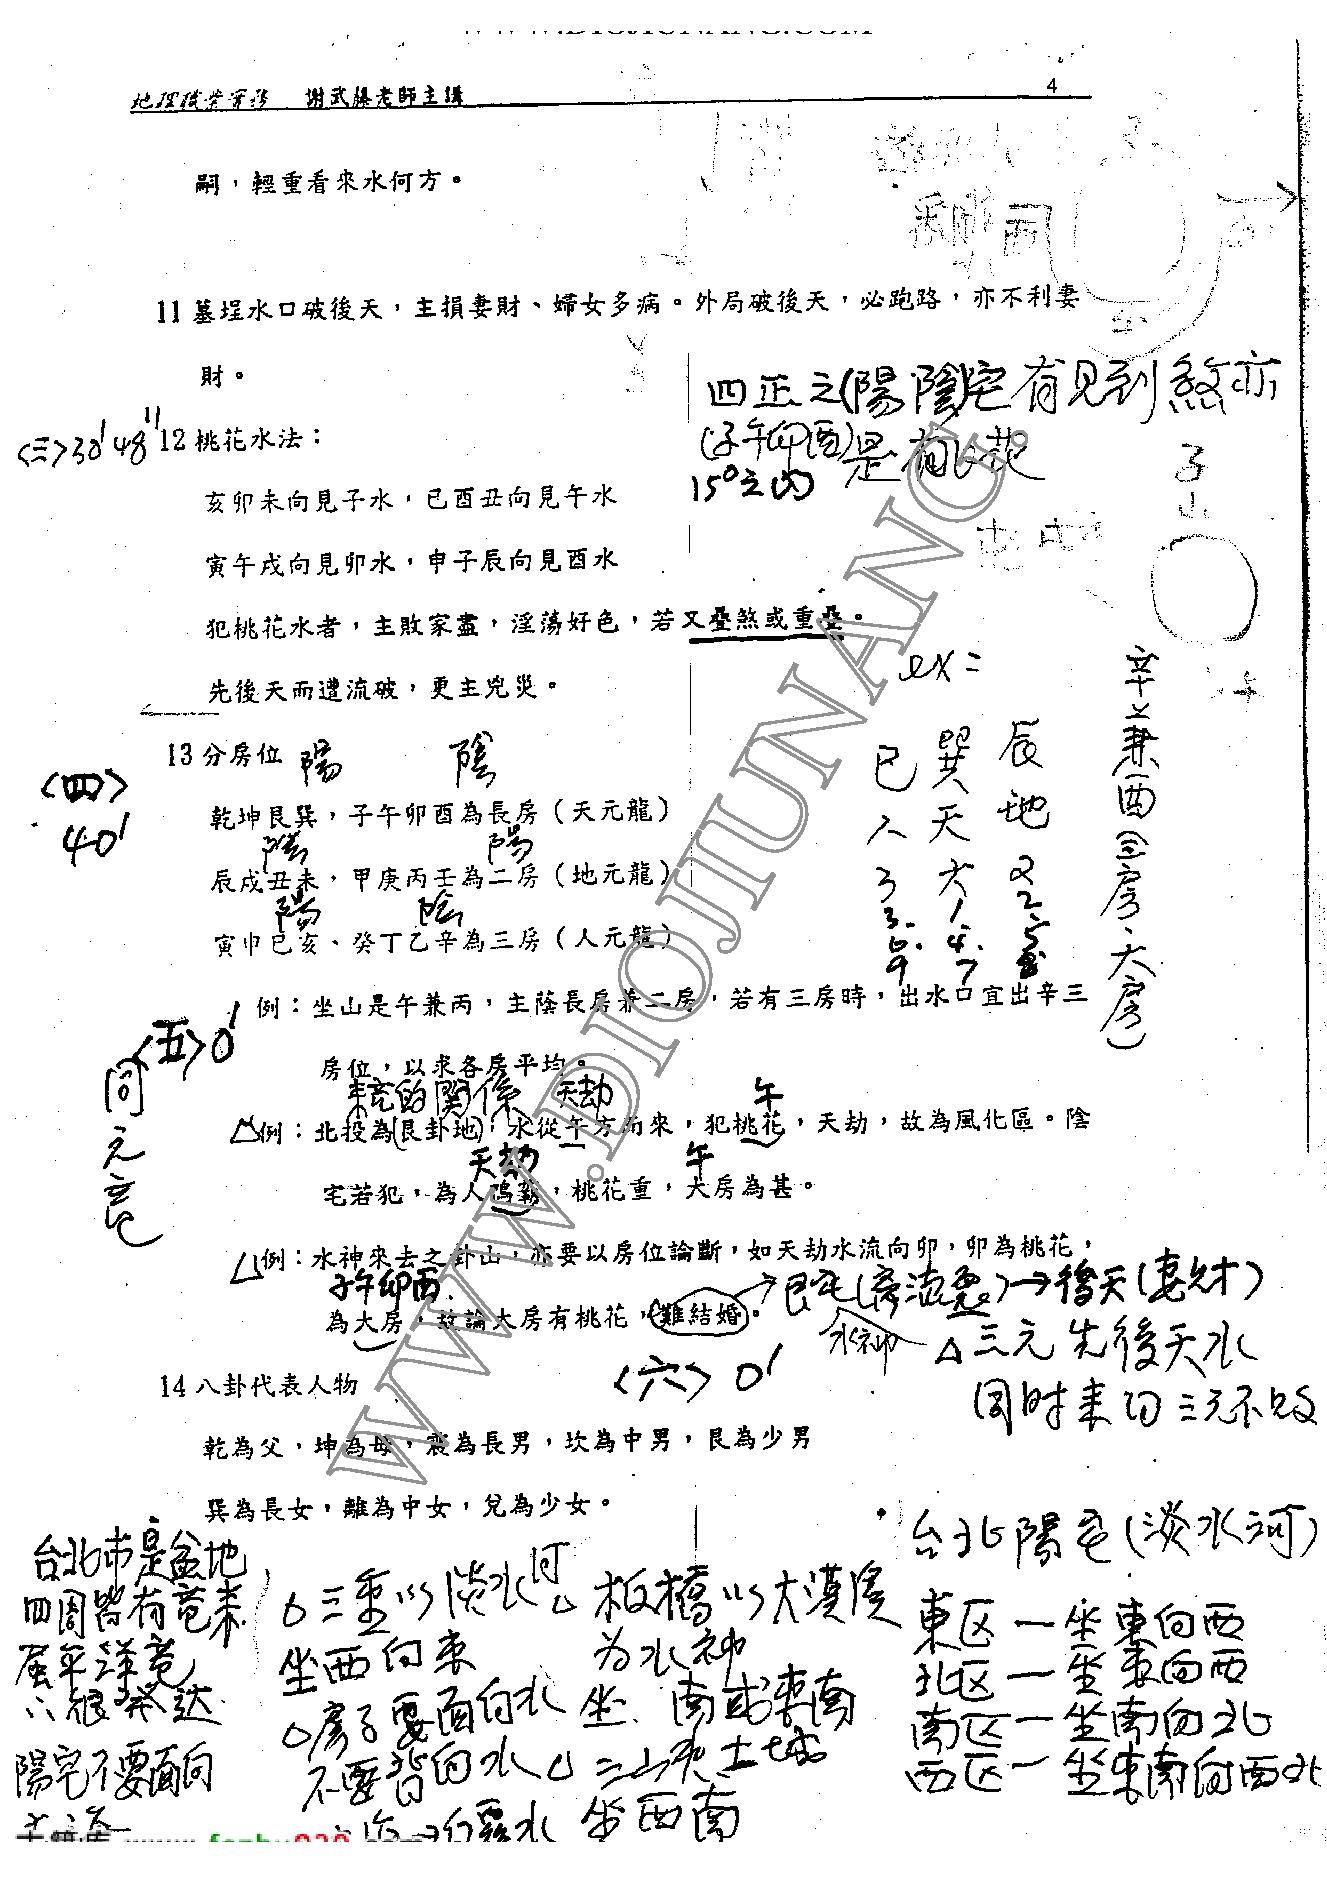 地理職業實務 謝武藤老師主講 4
嗣，輕重看來水何方。
11墓埕水口破後天，主損妻財、婦女多病。外局破後天，必跑路，亦不利妻
財。
四正之(陽陰)宅有見到煞亦
(子午卯酉)是有
15°之內
<三>30'48"
12桃花水法：
亥卯未向見子水，巳酉丑向見午水
寅午戌向見卯水，申子辰向見酉水
犯桃花水者，主敗家盡，淫蕩好色，若又疊煞或重疊。
先後天而遭流破，更主兇災。
子山
ex=
辰地
巽天
巳人
2
2.
5
8
大
1
4.
7
3
3.
6.
9
辛兼酉(三房、大房)
13分房位
陽 陰
<四>
40'
乾坤艮巽，子午卯酉為長房（天元龍）
陰 陽
辰戌丑未，甲庚丙壬為二房（地元龍）
陽 陰
寅申巳亥、癸丁乙辛為三房（人元龍）
例：坐山是午兼丙，主蔭長房兼二房，若有三房時，出水口宜出辛三
房位，以求各房平均。
<五>0'
同元竜
來竜的關係 天劫 午
例：北投為(艮卦地)，水從午方而來，犯桃花，天劫，故為風化區。陰
天劫 午
宅若犯，為人鴇，桃花重，大房為甚。
例：水神來去之卦山，亦要以房位論斷，如天劫水流向卯，卯為桃花，
子午卯酉.
為大房，故論大房有桃花，難結婚。
→後天(妻財)
水神
△三元先後天水
同時來的三元不敗
<六>0'
14八卦代表人物
乾為父，坤為母，震為長男，坎為中男，艮為少男
巽為長女，離為中女，兌為少女。
台北市是盆地
四周皆有竜來
屬平洋竜
發达
陽宅不要面向
三重以淡水河
坐西向東
房子要面向水
不要背向水
板橋以大漢溪
为水神
坐 南或東南
土城
坐西南
台北陽宅(淡水河)
東区一坐東向西
北区一坐東向西
南区一坐南向北
西区一坐東南向西北
WWW.DIOJIUNANG.